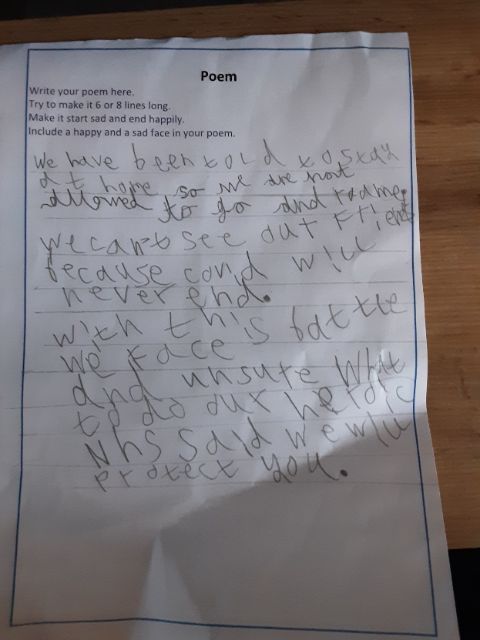 Poem
Write your poem here.
Try to make it 6 or 8 lines long.
Make it start sad and end happily.
Include a happy and a sad face in your poem.
We have been told to stay
at home so we are not
allowed to go and roame.
We can't see our Friends
because covid will
never end.
With this battle
We Face
and unsure What
to do our heroic
Nhs said we will
protect you.